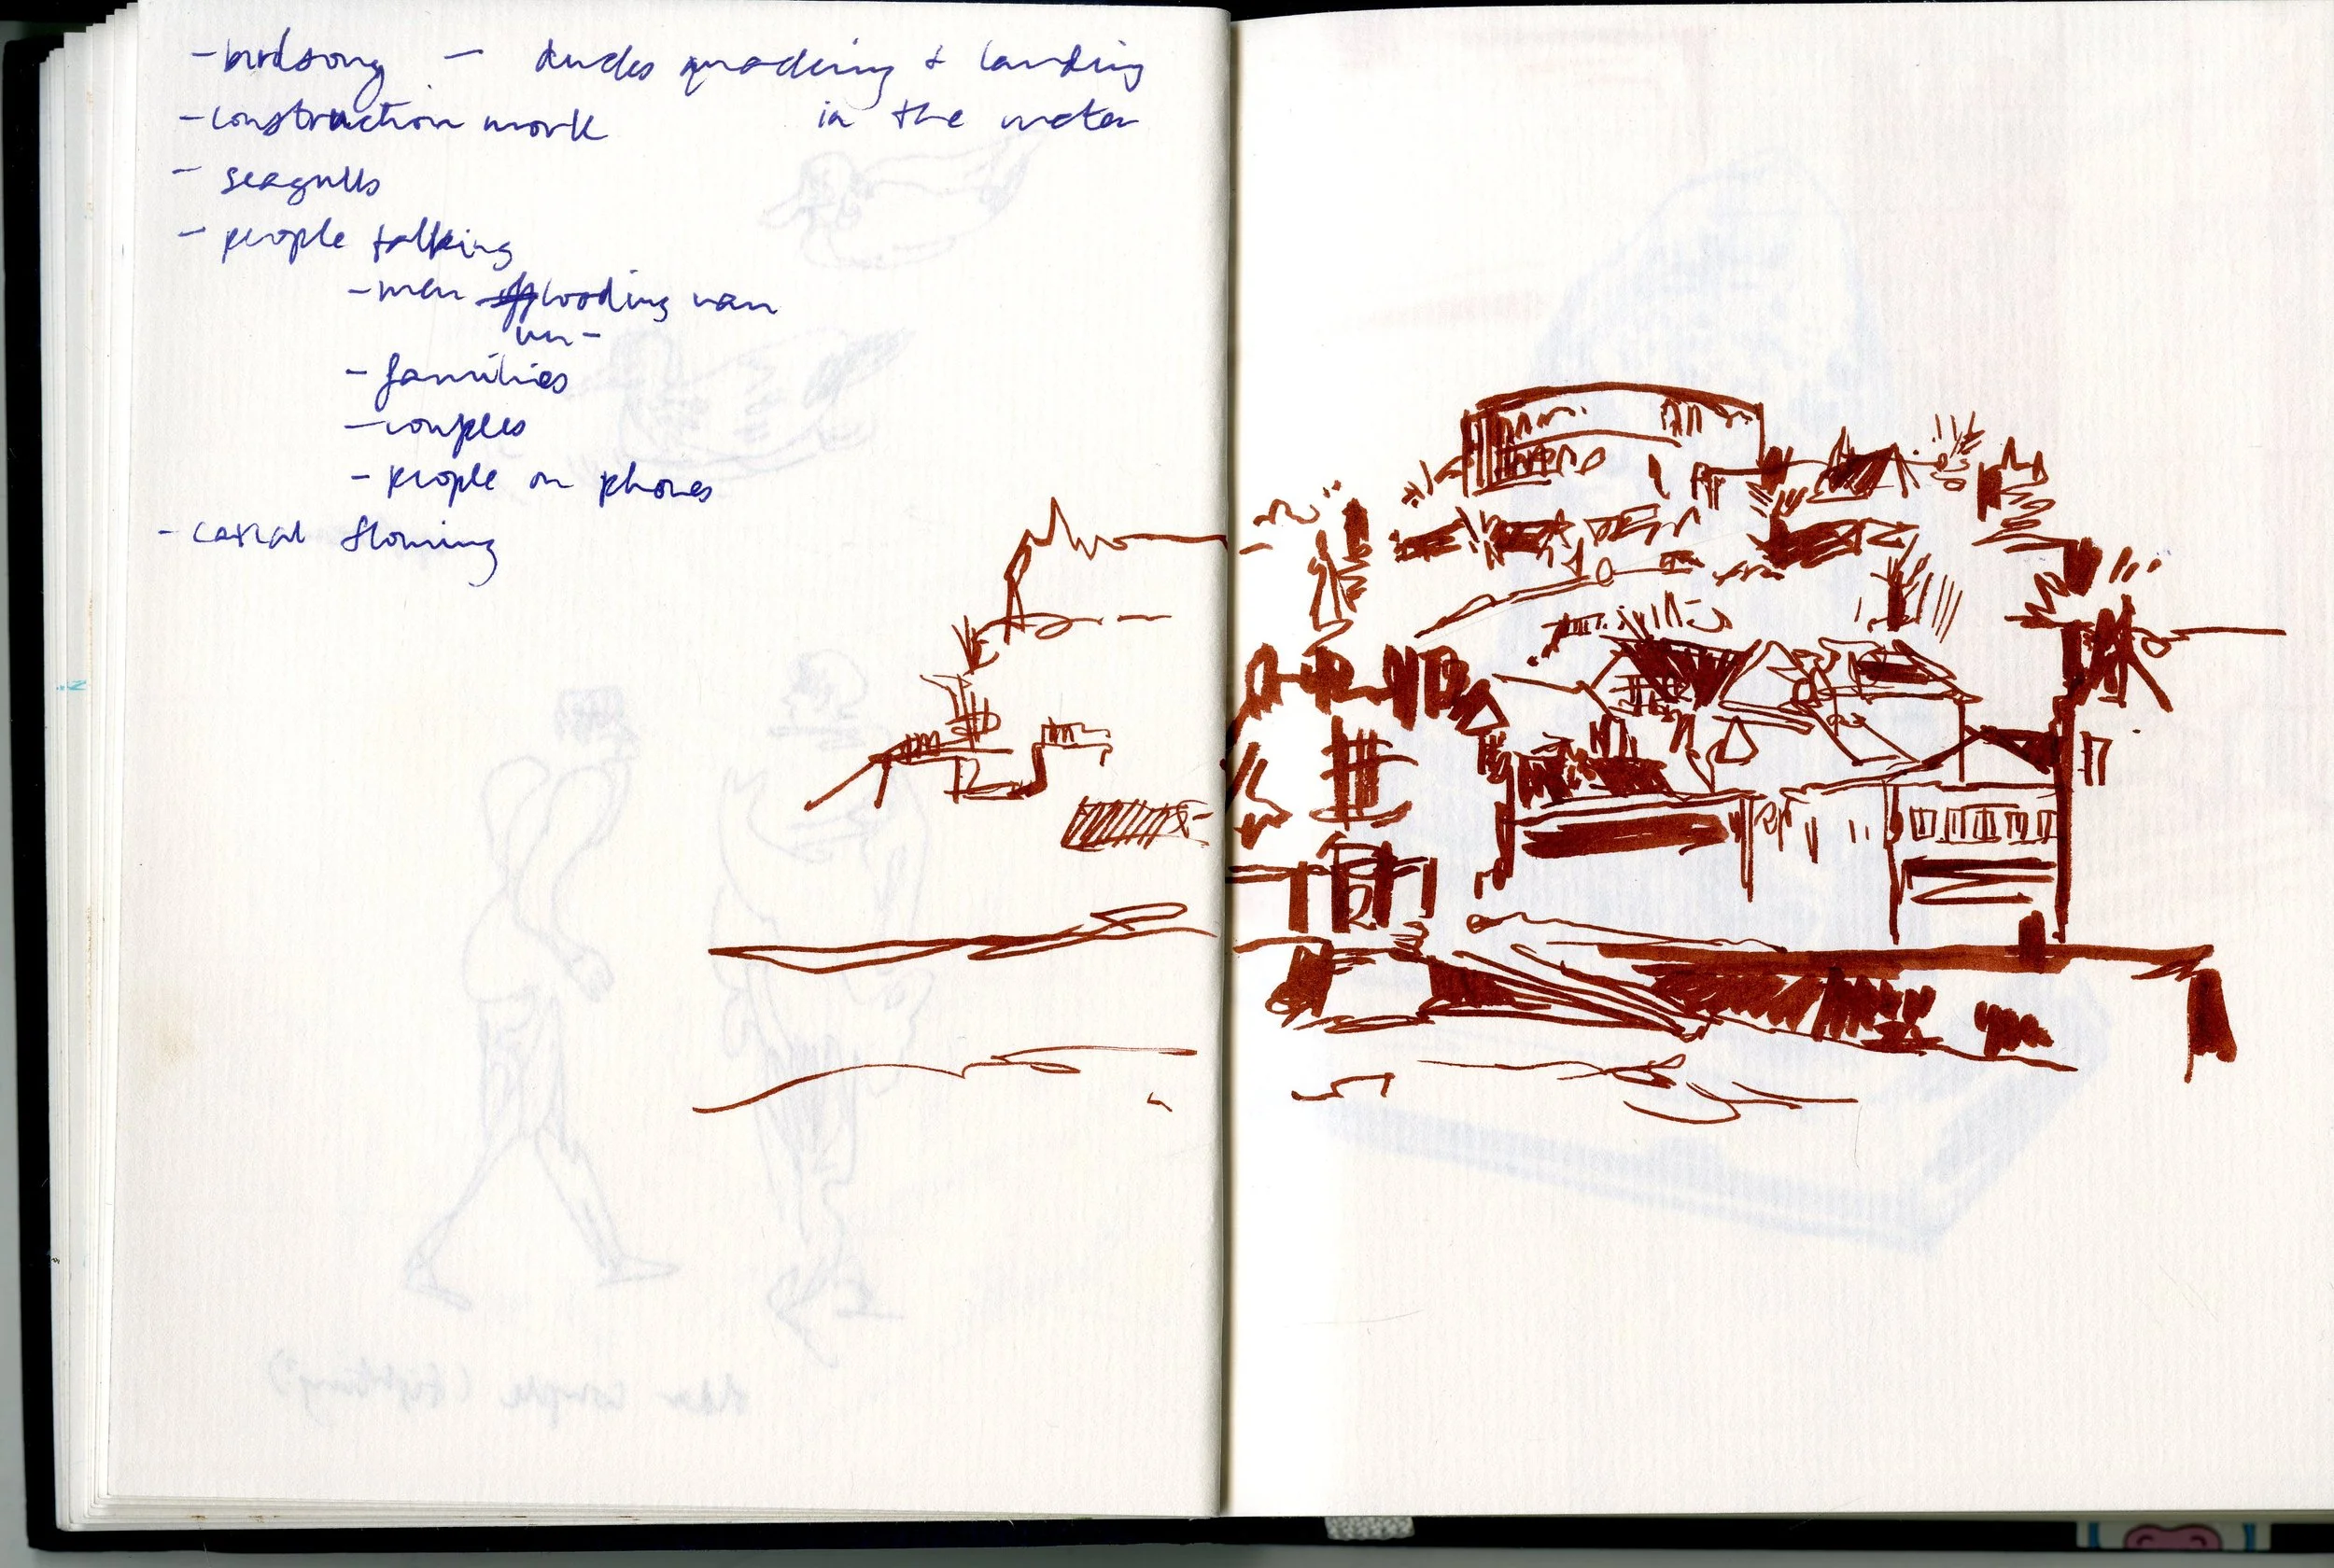 - birdsong - ducks quacking + landing
- construction work in the water
- seagulls
- people talking
- men loading van
un-
- families
- couples
- people on phones
- canal flowing